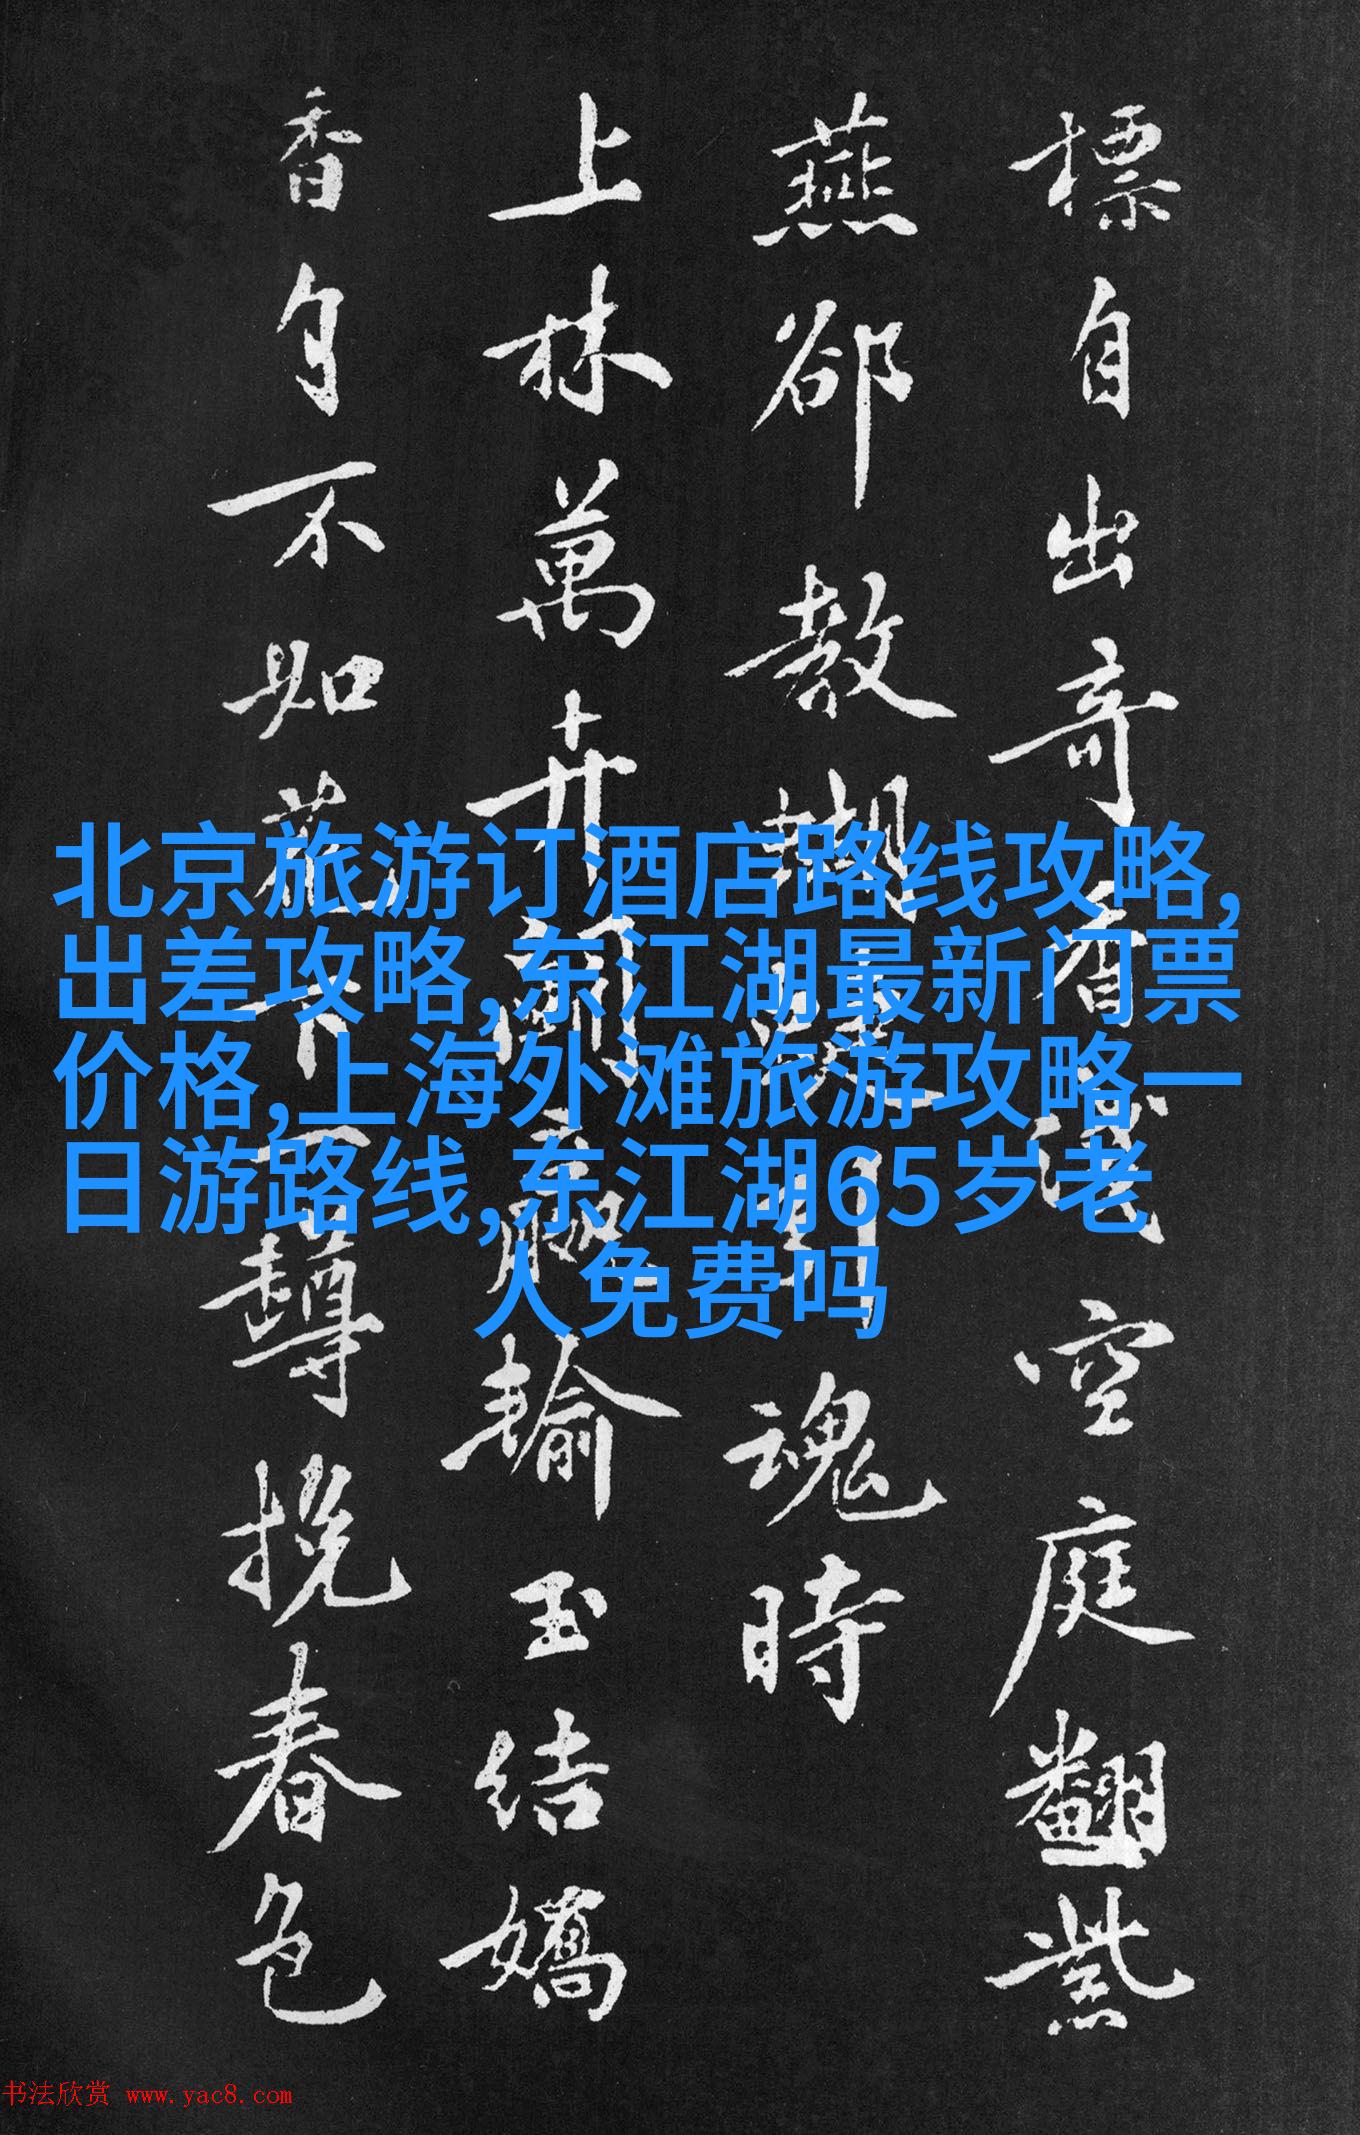 標自出奇看空庭翻紫
燕郤教蝴蝶引魂時
上林萬卉開輸玉結嬌
香自不如花下一挽春色
北京旅游订酒店路线攻略,
出差攻略,东江湖最新门票
价格,上海外滩旅游攻略一
日游路线,东江湖65岁老
人免费吗
书法欣赏 www.yac8.com